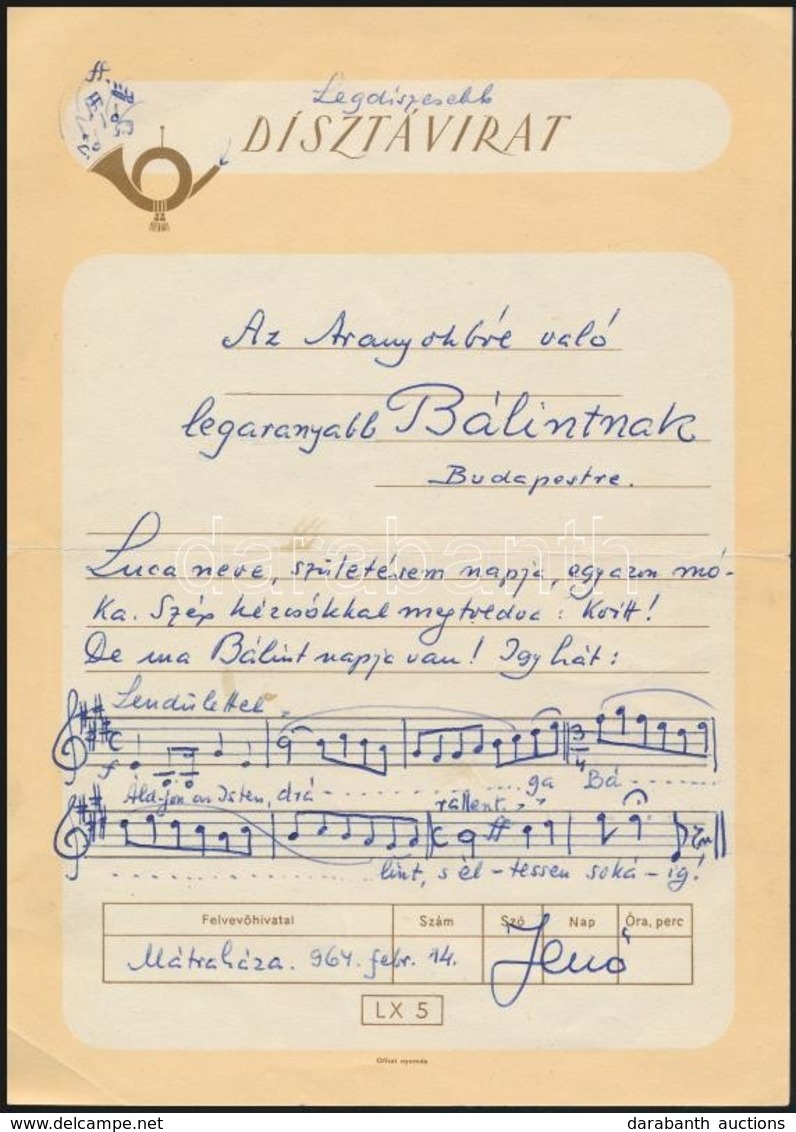 ff.
Legdiszesebb
DÍSZTÁVIRAT
Az Aranyokbré való
legaranyabb Bálintnak
Budapestre.
darabanth
Luca neve, születésem napja, egyazon mó-
ka. Szép kézcsókkal megtoldva: Kvitt!
De ma Bálint napja van! Igy hát:
Lendülettel
f
Áld-jon az Isten, drá - - - ga Bá - - -
rallent.
ff
lint, s él-tessen soká-ig!
Felvevőhivatal Szám Szó Nap Óra, perc
Mátraháza. 964. febr. 14. Jenő
LX 5
Offset nyomda
darabanth auctions